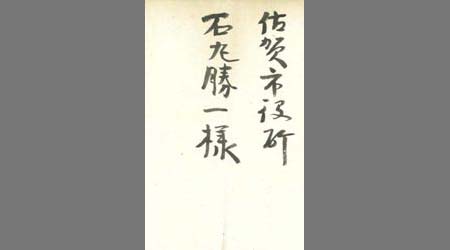 佐賀市役所
石丸勝一様